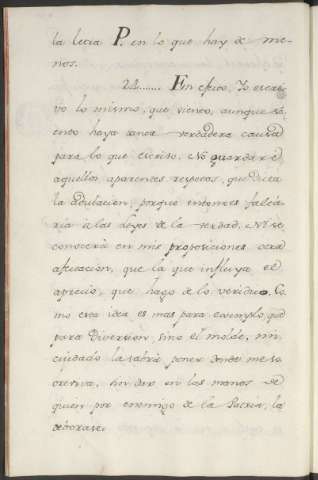 la letra P. en lo que hay de me-
nos.
22....... En efecto, Yo escri-
vo lo mismo, que siento, aunque
para lo que escrivo. No guardaré
aquellos aparentes respetos, que dicta
la adulacion, porque entonces falta-
ria á las Leyes de la verdad. No se
conocerá en mis proposiciones otra
afectacion, que la que influya el
aprecio, que hago de lo veridico. Co-
mo esta idea es mas para exemplo, que
para Diversion, sino el molde, mi
cuydado la sabrá poner donde me so-
breviva, sin dar en las manos de
quien por enemigo de la Patria, la
devorase.